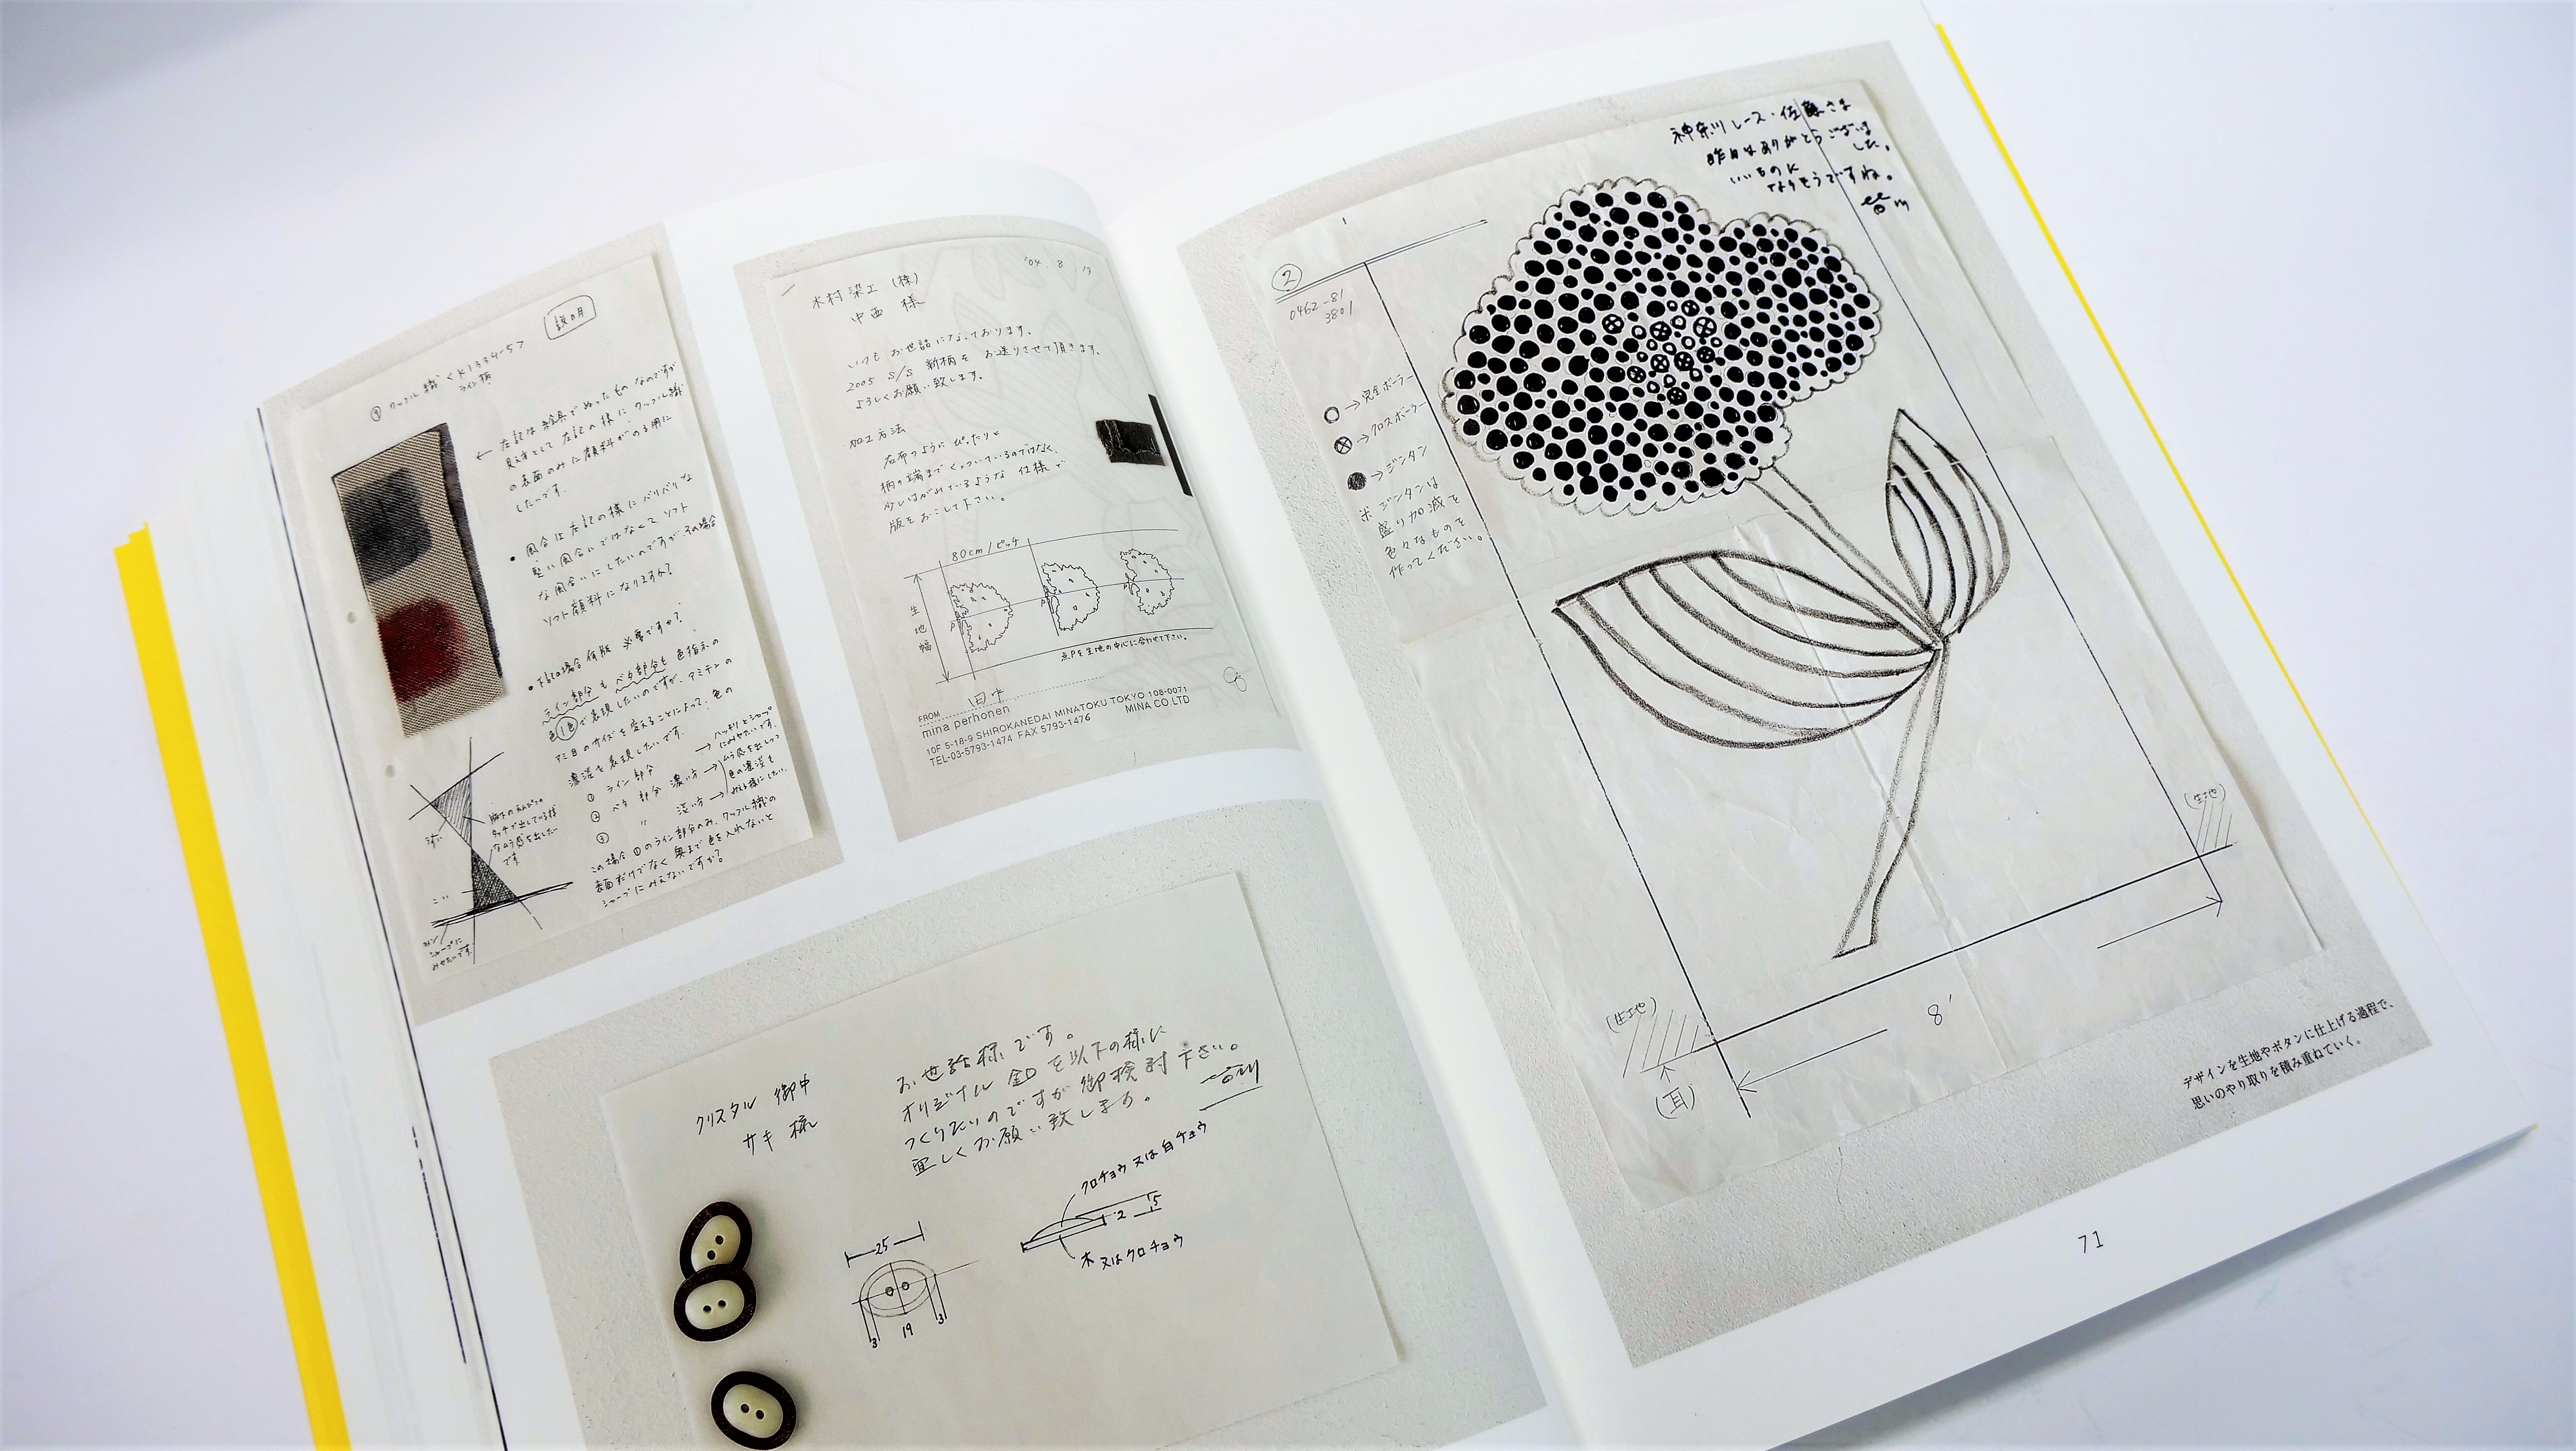 ③ ワッフル織 <K1334-5>
ライン柄
← 左記は絵具でぬったものなのですが
見え方として左記の様にワッフル織
の表面のみに顔料がのる用に
したいです。
• 風合は左記の様にバリバリな
堅い風合いではなくてソフト
な風合いにしたいのですが、その場合
ソフト顔料になりますか?
• 下記の場合何版必要ですか?
ライン部分もベタ部分も色指示の
色1色で表現したいのですが、アミテンの
アミ目のサイズを変えることによって、色の
濃淡を表現したいです。
① ライン部分 → ハッキリとシャープ
にみせたいです。
② ベタ部分 濃い方 → ムラ感を出しつつ
色の濃淡を
③ 〃 淡い方 → みえる様にしたい。
この場合①のライン部分のみ、ワッフル織の
表面だけでなく奥まで色を入れないと
シャープにみえないですか?
木村染工(株)
中西 様
'04. 8. 19
いつもお世話になっております。
2005 S/S 新柄をお送りさせて頂きます。
よろしくお願い致します。
加工方法
右布のようにぴったりと
柄の端までくっついているのではなく、
少しはがれているような仕様で
版をおこして下さい。
80cm/ピッチ
生地幅
点Pを生地の中心に合わせて下さい。
FROM 田中
mina perhonen
10F 5-18-9 SHIROKANEDAI MINATOKU TOKYO 108-0071
TEL-03-5793-1474 FAX 5793-1476 MINA CO LTD
クリスタル 御中
サキ 様
お世話様です。
オリジナル釦を以下の様に
つくりたいのですが御検討下さい。
宜しくお願い致します。
25
3
19
3
クロチョウ又は白チョウ
5
2
木又はクロチョウ
神奈川レース・佐藤さま
昨日はありがとうございま
した。
いいものに
なりそうですね。
②
0462-81
3801
○→完全ボーラー
⊗→クロスボーラー
●→ジンタン
ジンタンは
盛り加減を
色々なものを
作ってください。
(生地)
(生地)
(耳)
8'
デザインを生地やボタンに仕上げる過程で、
思いのやり取りを積み重ねていく。
71